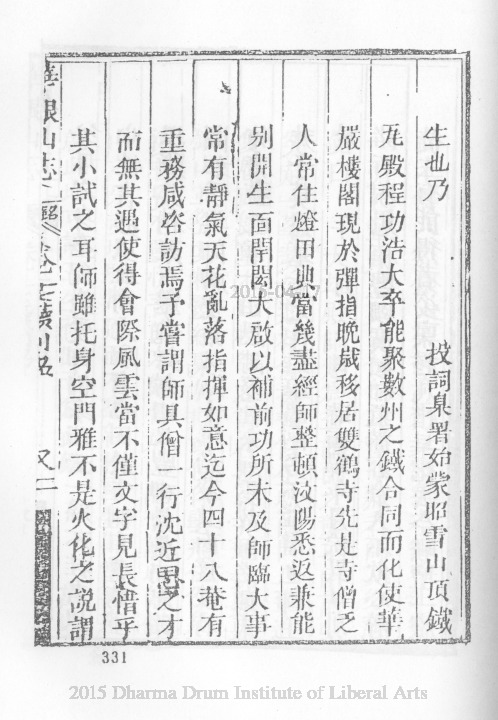 生也乃　投詞臬署始蒙昭雪山頂鐵
瓦殿程功浩大卒能聚數州之鐵合同而化使華
嚴樓閣現於彈指晚歲移居雙鶴寺先是寺僧乏
人常住燈田典當幾盡經師整頓汶陽悉返兼能
别開生面閈閎大啟以補前功所未及師臨大事
常有靜氣天花亂落指揮如意迄今四十八菴有
重務咸咨訪焉予嘗謂師具僧一行沈近思之才
而無其遇使得會際風雲當不僅文字見長惜乎
其小試之耳師雖托身空門雅不是火化之說謂
山志
又二
331
2015 Dharma Drum Institute of Liberal Arts